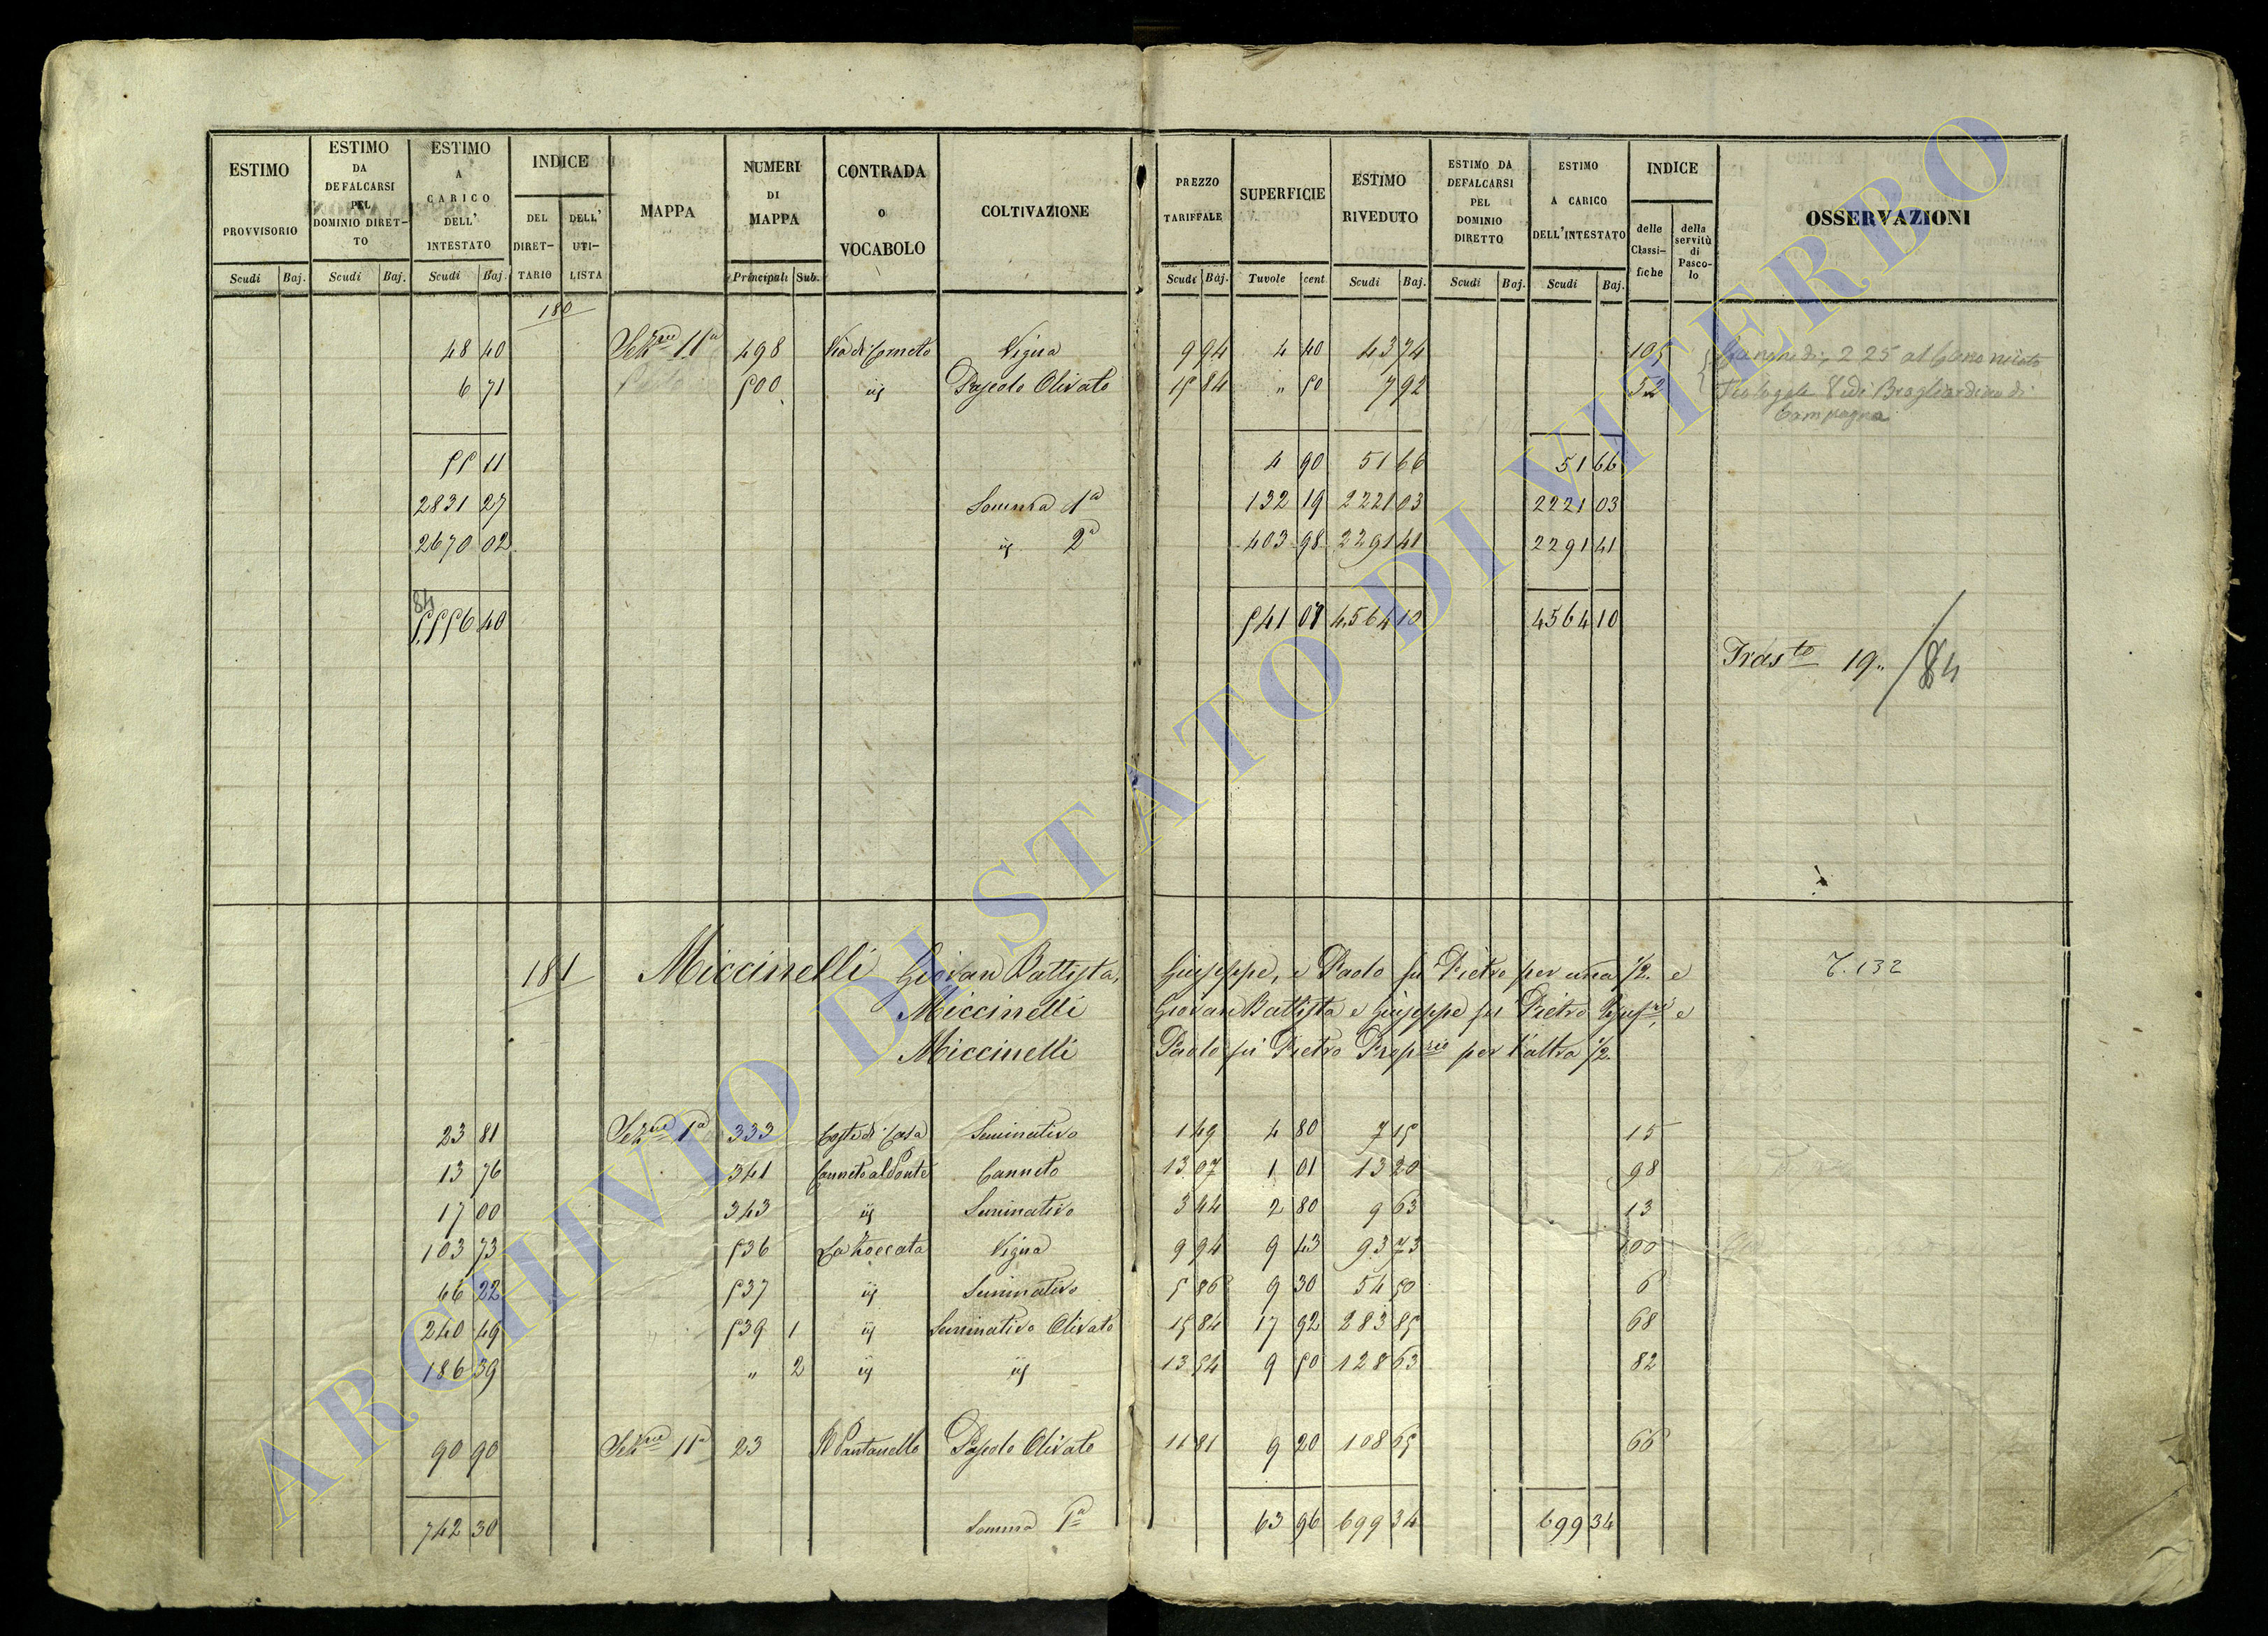 ESTIMO PROVVISORIO | ESTIMO DA DEFALCARSI PEL DOMINIO DIRETTO | ESTIMO A CARICO DELL' INTESTATO | INDICE | MAPPA | NUMERI DI MAPPA | CONTRADA o VOCABOLO | COLTIVAZIONE | PREZZO TARIFFALE | SUPERFICIE | ESTIMO RIVEDUTO | ESTIMO DA DEFALCARSI PEL DOMINIO DIRETTO | ESTIMO A CARICO DELL'INTESTATO | INDICE | OSSERVAZIONI
DEL DIRET-TARIO | DELL' UTI-LISTA | delle Classi-fiche | della servitù di Pasco-lo
Scudi | Baj. | Scudi | Baj. | Scudi | Baj. | Principali | Sub. | Scudi | Baj. | Tavole | cent. | Scudi | Baj. | Scudi | Baj. | Scudi | Baj.
180
48 40 Sezne 11a 498 Via di Corneto Vigna 9 94 4 40 43 74 105
6 71 500 id Pascolo Olivato 15 84 " 50 7 92 52
Campagna
55 11 4 90 51 66 51 66
2831 27 Somma 1a 132 19 2221 03 2221 03
2670 02 id 2a 403 98 2291 41 2291 41
84
5556 40 541 07 4564 10 4564 10
Trasto 19. / 84
181 Miccinelli Giovan Battista, Giuseppe, e Paolo fu Pietro per una 1/2. e T. 132
Miccinelli Giovan Battista e Giuseppe fu Pietro e
Miccinelli Paolo fu Pietro Proprio per l'altra 1/2.
23 81 Sezne 1a 333 Coste di Casa Seminativo 1 49 4 80 7 15 15
13 76 341 Canneto al Ponte Canneto 13 07 1 01 13 20 98
17 00 343 id Seminativo 3 44 2 80 9 63 13
103 73 536 La Roccata Vigna 9 94 9 43 93 73 100
66 22 537 id Seminativo 5 86 9 30 54 50 6
240 49 539 1 id Seminativo Olivato 15 84 17 92 283 85 68
186 39 " 2 id id 13 54 9 50 128 63 82
90 90 Sezne 11a 23 Il Pantanello Pascolo Olivato 11 81 9 20 108 65 66
742 30 Somma 1a 63 96 699 34 699 34
ARCHIVIO DI STATO DI VITERBO